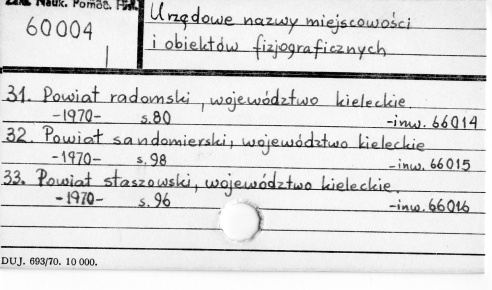 Zakł. Nauk. Pomoc. Hist.
60004
Urzędowe nazwy miejscowości
i obiektów fizjograficznych
31. Powiat radomski, województwo kieleckie.
-1970- s.80 -inw. 66014
32. Powiat sandomierski, województwo kieleckie
-1970- s.98 -inw. 66015
33. Powiat staszowski, województwo kieleckie.
-1970- s.96 -inw. 66016
DUJ. 693/70. 10 000.